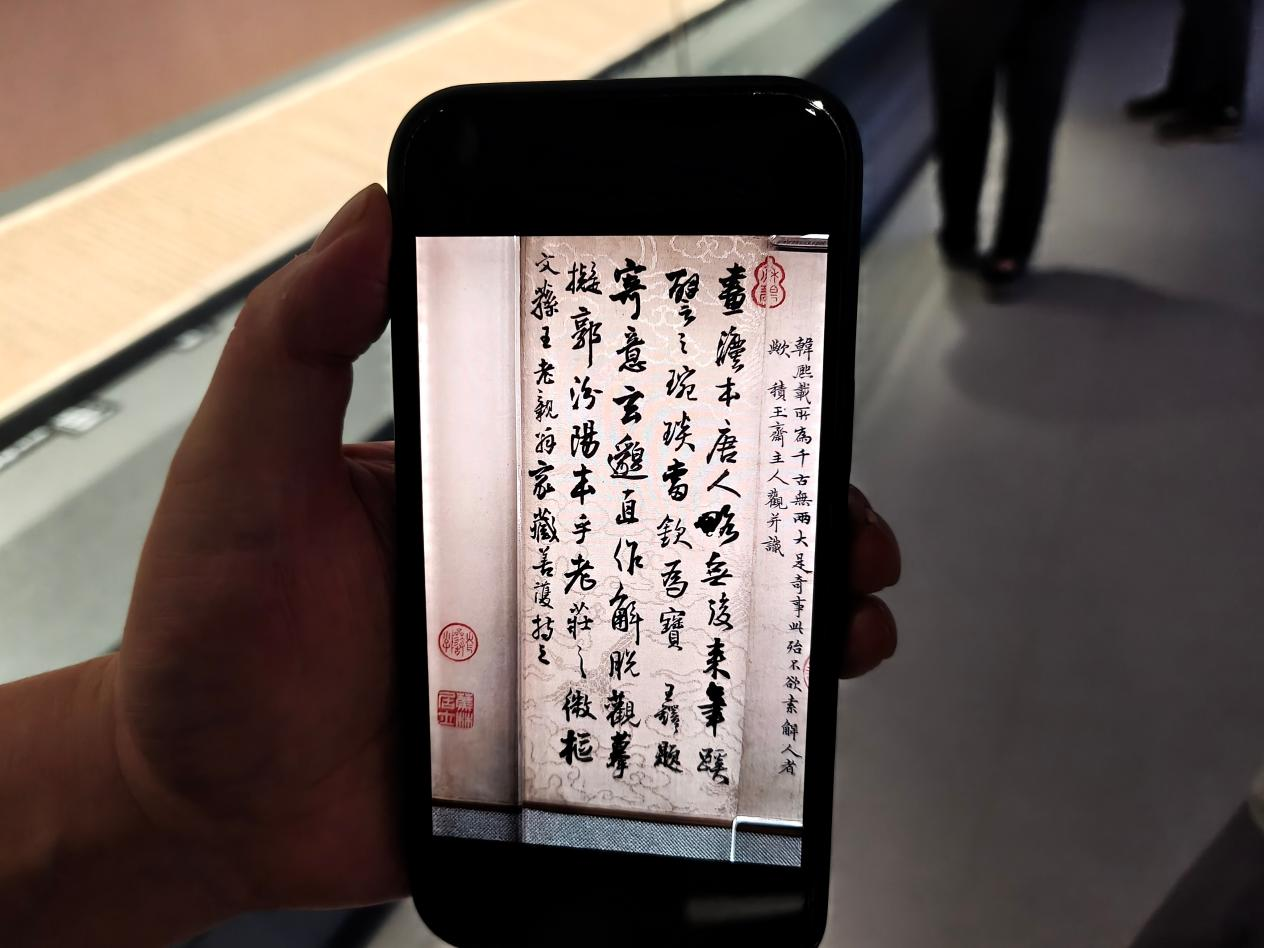 韓熙載所為千古無兩大是奇事此殆不欲素解人者
歟 積玉齋主人觀并識
畫灋本唐人略無後來筆蹊
譬之琬琰當欽為寶 王鐸題
寄意玄邈直作解脫觀摹
擬郭汾陽本乎老莊之微樞
文蓀王老親翁家藏善護持之